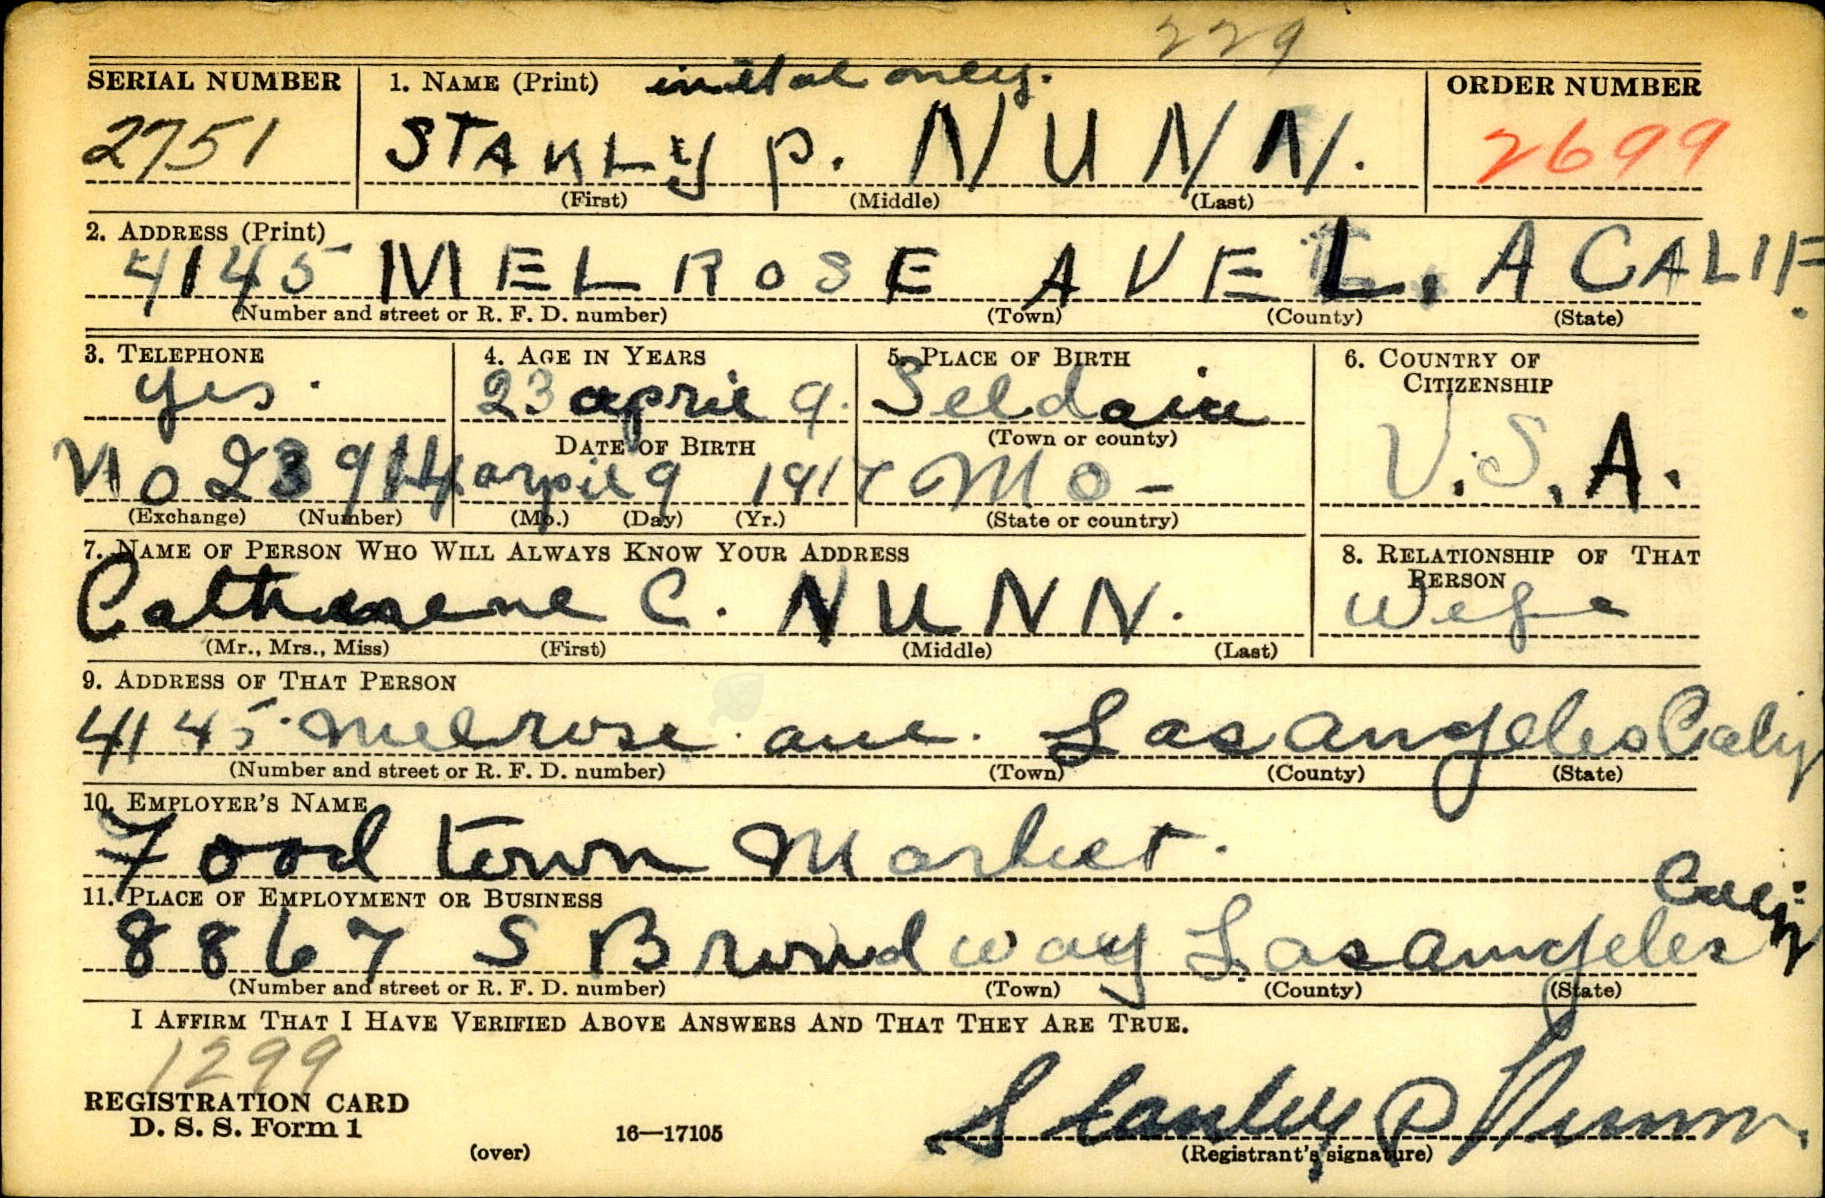 229
SERIAL NUMBER 1. NAME (Print) initial only. ORDER NUMBER
2751 STANLY P. NUNN. 2699
(First) (Middle) (Last)
2. ADDRESS (Print)
4145 MELROSE AVE L. A CALIF.
(Number and street or R. F. D. number) (Town) (County) (State)
3. TELEPHONE 4. AGE IN YEARS 5. PLACE OF BIRTH 6. COUNTRY OF CITIZENSHIP
yes. 23 april 9. U.S.A.
DATE OF BIRTH (Town or county)
No 23914 april 9 1917 Mo-
(Exchange) (Number) (Mo.) (Day) (Yr.) (State or country)
7. NAME OF PERSON WHO WILL ALWAYS KNOW YOUR ADDRESS 8. RELATIONSHIP OF THAT PERSON
Catharene C. NUNN. Wife
(Mr., Mrs., Miss) (First) (Middle) (Last)
9. ADDRESS OF THAT PERSON
4145 Melrose ave. Los Angeles Calif
(Number and street or R. F. D. number) (Town) (County) (State)
10. EMPLOYER'S NAME
Food town Market.
11. PLACE OF EMPLOYMENT OR BUSINESS
8867 S Broadway Los Angeles Calif
(Number and street or R. F. D. number) (Town) (County) (State)
I AFFIRM THAT I HAVE VERIFIED ABOVE ANSWERS AND THAT THEY ARE TRUE.
1299
REGISTRATION CARD
D. S. S. Form 1
(over) 16—17105 Stanley P Nunn.
(Registrant's signature)